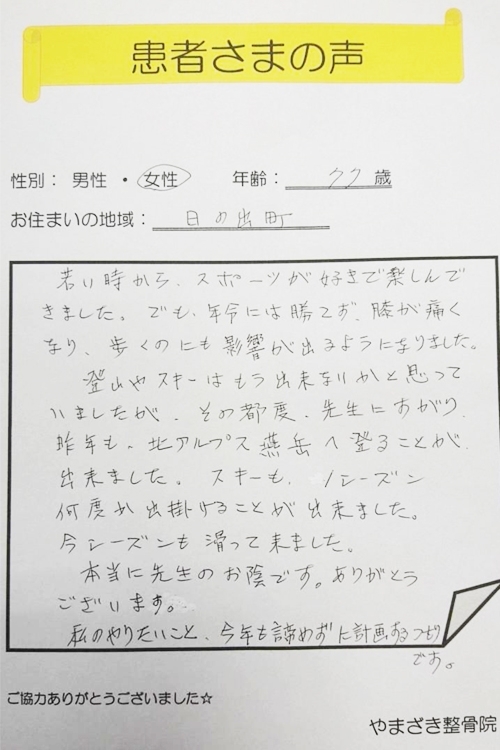 患者さまの声
性別： 男性 ・ 女性 年齢： 77 歳
お住まいの地域： 日の出町
若い時から、スポーツが好きで楽しんで
きました。でも、年令には勝てず、膝が痛く
なり、歩くのにも影響が出るようになりました。
登山やスキーはもう出来ないかと思って
いましたが、その都度、先生にすがり、
昨年も、北アルプス燕岳へ登ることが、
出来ました。スキーも、1シーズン
何度か出掛けることが出来ました。
今シーズンも滑って来ました。
本当に先生のお陰です。ありがとう
ございます。
私のやりたいこと、今年も諦めずに計画するつもり
です。
ご協力ありがとうございました☆
やまざき整骨院